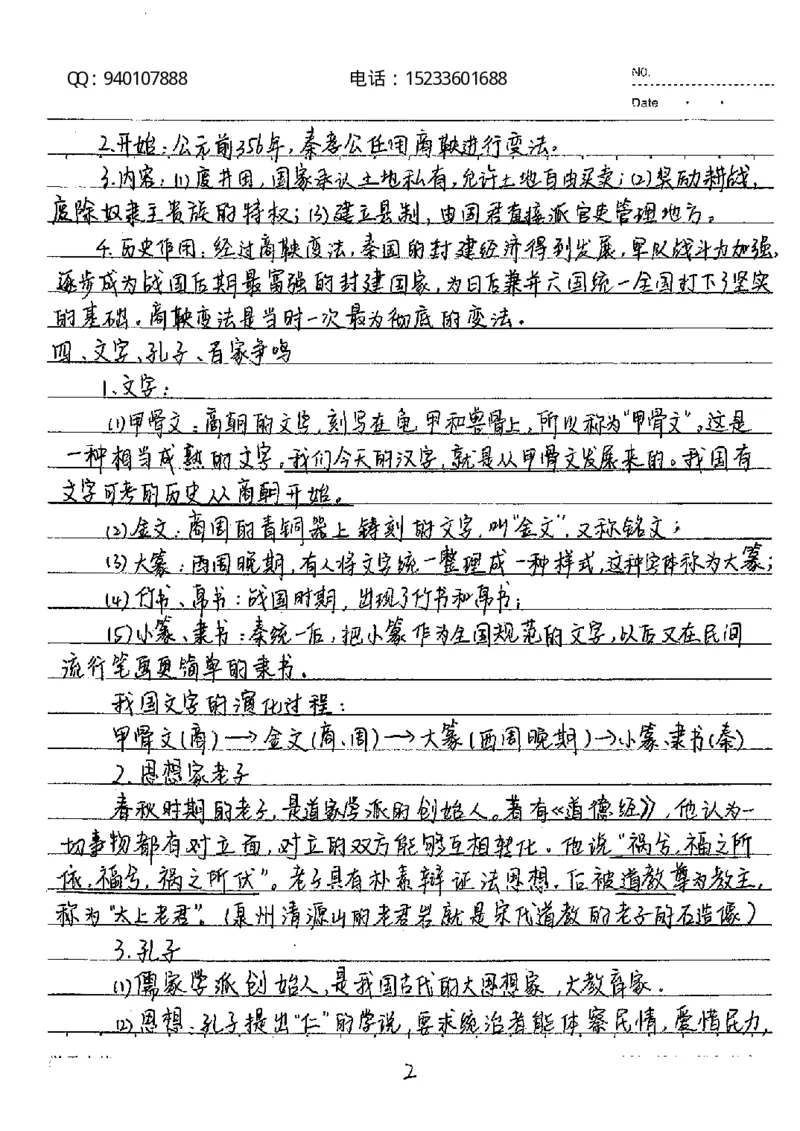 QQ：940107888
电话：15233601688
NO.
Date
2.开始：公元前356年，秦孝公任用商鞅进行变法。
3.内容：(1)废井田，国家承认土地私有，允许土地自由买卖；(2)奖励耕战，
废除奴隶主贵族的特权；(3)建立县制，由国君直接派官吏管理地方。
4.历史作用：经过商鞅变法，秦国的封建经济得到发展，军队战斗力加强，
逐步成为战国后期最富强的封建国家，为日后兼并六国统一全国打下了坚实
的基础。商鞅变法是当时一次最为彻底的变法。
四、文字、孔子、百家争鸣
1、文字：
(1)甲骨文：商朝的文字，刻写在龟甲和兽骨上，所以称为“甲骨文”。这是
一种相当成熟的文字。我们今天的汉字，就是从甲骨文发展来的。我国有
文字可考的历史从商朝开始。
(2)金文：商周的青铜器上铸刻的文字，叫“金文”，又称铭文；
(3)大篆：西周晚期，有人将文字统一整理成一种样式，这种字体称为大篆；
(4)竹书、帛书：战国时期，出现了竹书和帛书；
(5)小篆、隶书：秦统一后，把小篆作为全国规范的文字，以后又在民间
流行笔画更简单的隶书。
我国文字的演化过程：
甲骨文(商)→金文(商、周)→大篆(西周晚期)→小篆、隶书(秦)
2.思想家老子
春秋时期的老子，是道家学派的创始人。著有《道德经》，他认为一
切事物都有对立面，对立的双方能够互相转化。他说“祸兮，福之所
依，福兮，祸之所伏”。老子具有朴素辩证法思想。后被道教尊为教主，
称为“太上老君”。(泉州清源山的老君岩就是宋代道教的老子的石造像)
3.孔子
(1)儒家学派创始人，是我国古代的大思想家，大教育家。
(2)思想：孔子提出“仁”的学说，要求统治者能体察民情，爱惜民力，
2